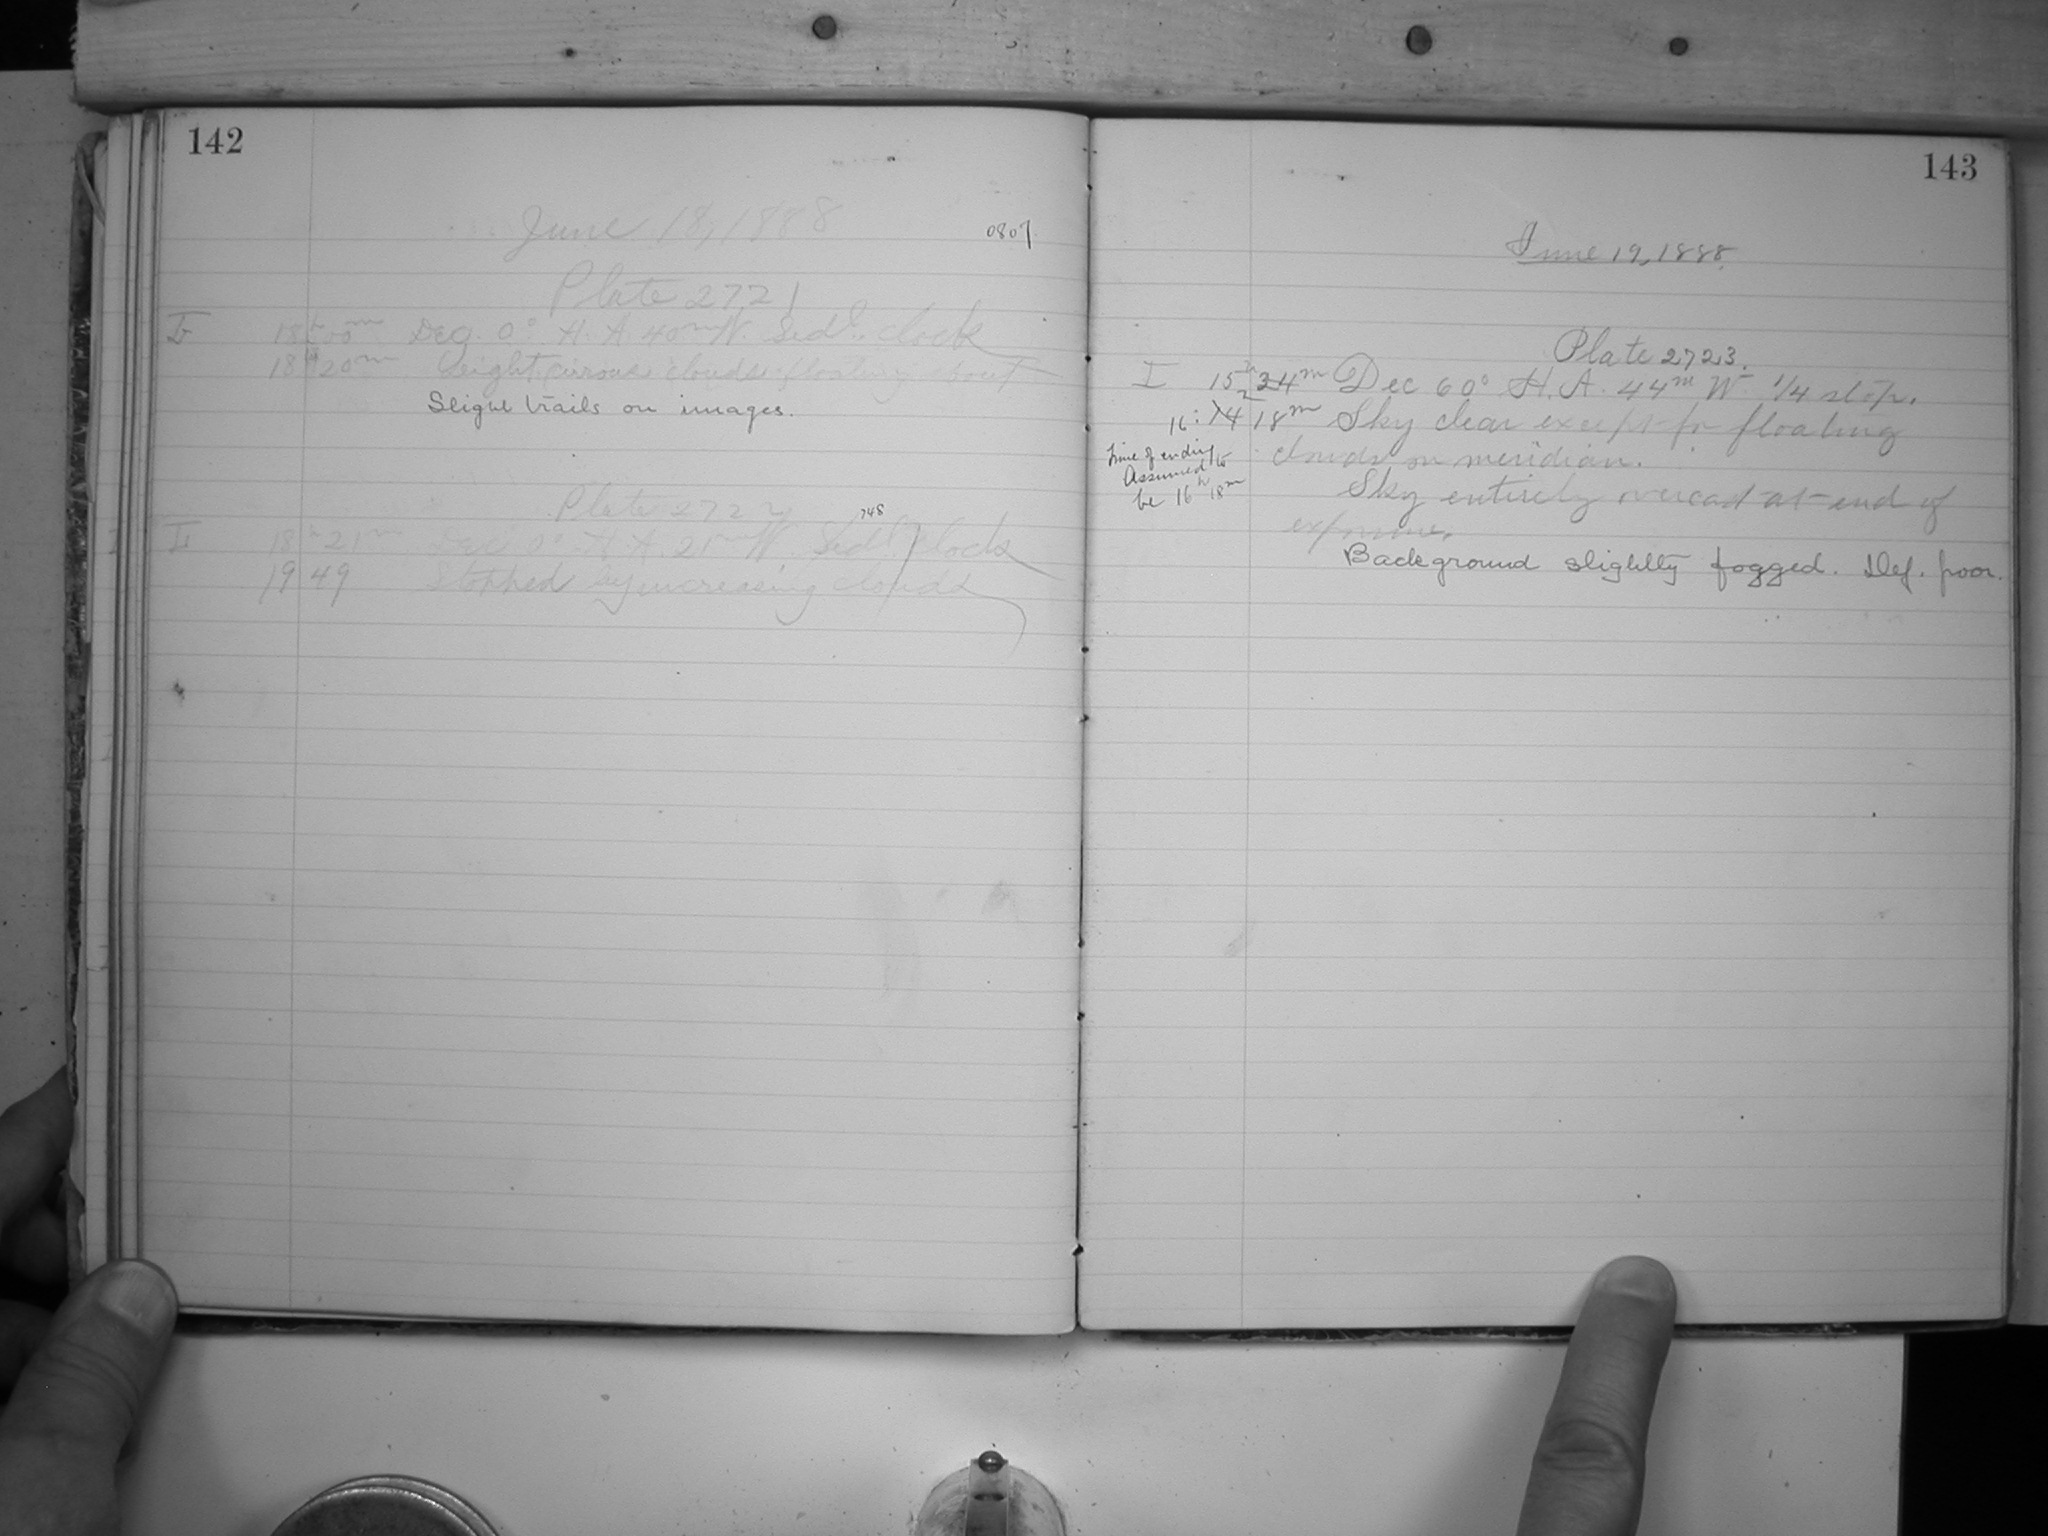 142
June 18, 1888
0807
Plate 2721
I 18h 00m Dec. 0° H. A. 40m W. Sidl. clock
18h 20m Light cirrous clouds floating about
Slight trails on images.
Plate 2722
748
I 18h 21m Dec. 0° H. A. 21m W. Sidl. clock
19 49 Stopped by increasing clouds
143
June 19, 1888.
Plate 2723.
I 15h 34m Dec 60° H. A. 44m W 1/4 stop.
16: 14 18m Sky clear except for floating
clouds on meridian.
Time of ending
Assumed to
be 16h 18m
Sky entirely overcast at end of
exposure.
Background slightly fogged. Def. poor.